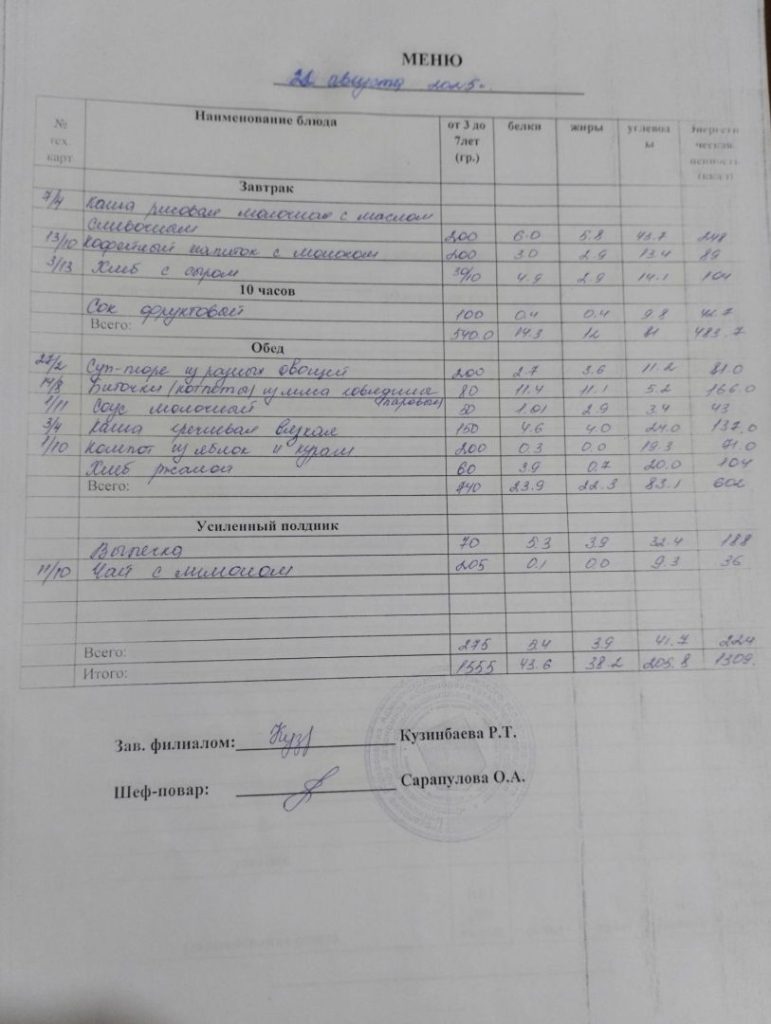 МЕНЮ
августа 2025г.
№ тех. карт Наименование блюда от 3 до 7лет (гр.) белки жиры углеводы Энергетическая ценность (ккал)
Завтрак
7/4 Каша рисовая молочная с маслом
сливочным 200 6.0 5.8 43.7 248
13/10 Кофейный напиток с молоком 200 3.0 2.9 13.4 89
3/13 Хлеб с сыром 30/10 4.9 2.9 14.1 104
10 часов
Сок фруктовый 100 0.4 0.4 9.8 42.7
Всего: 540.0 14.3 12 81 483.7
Обед
22/2 Суп-пюре из разных овощей 200 2.7 3.6 11.2 81.0
14/8 Биточки (котлеты) из мяса говядины (паровые) 80 11.4 11.1 5.2 166.0
1/11 Соус молочный 50 1.01 2.9 3.4 43
3/4 Каша гречневая вязкая 150 4.6 4.0 24.0 137.0
1/10 Компот из яблок и кураги 200 0.3 0.0 19.3 71.0
Хлеб ржаной 60 3.9 0.7 20.0 104
Всего: 740 23.9 22.3 83.1 602
Усиленный полдник
Выпечка 70 5.3 3.9 32.4 188
11/10 Чай с лимоном 205 0.1 0.0 9.3 36
Всего: 275 5.4 3.9 41.7 224
Итого: 1555 43.6 38.2 205.8 1309.
Зав. филиалом: Кузинбаева Р.Т.
Шеф-повар: Сарапулова О.А.